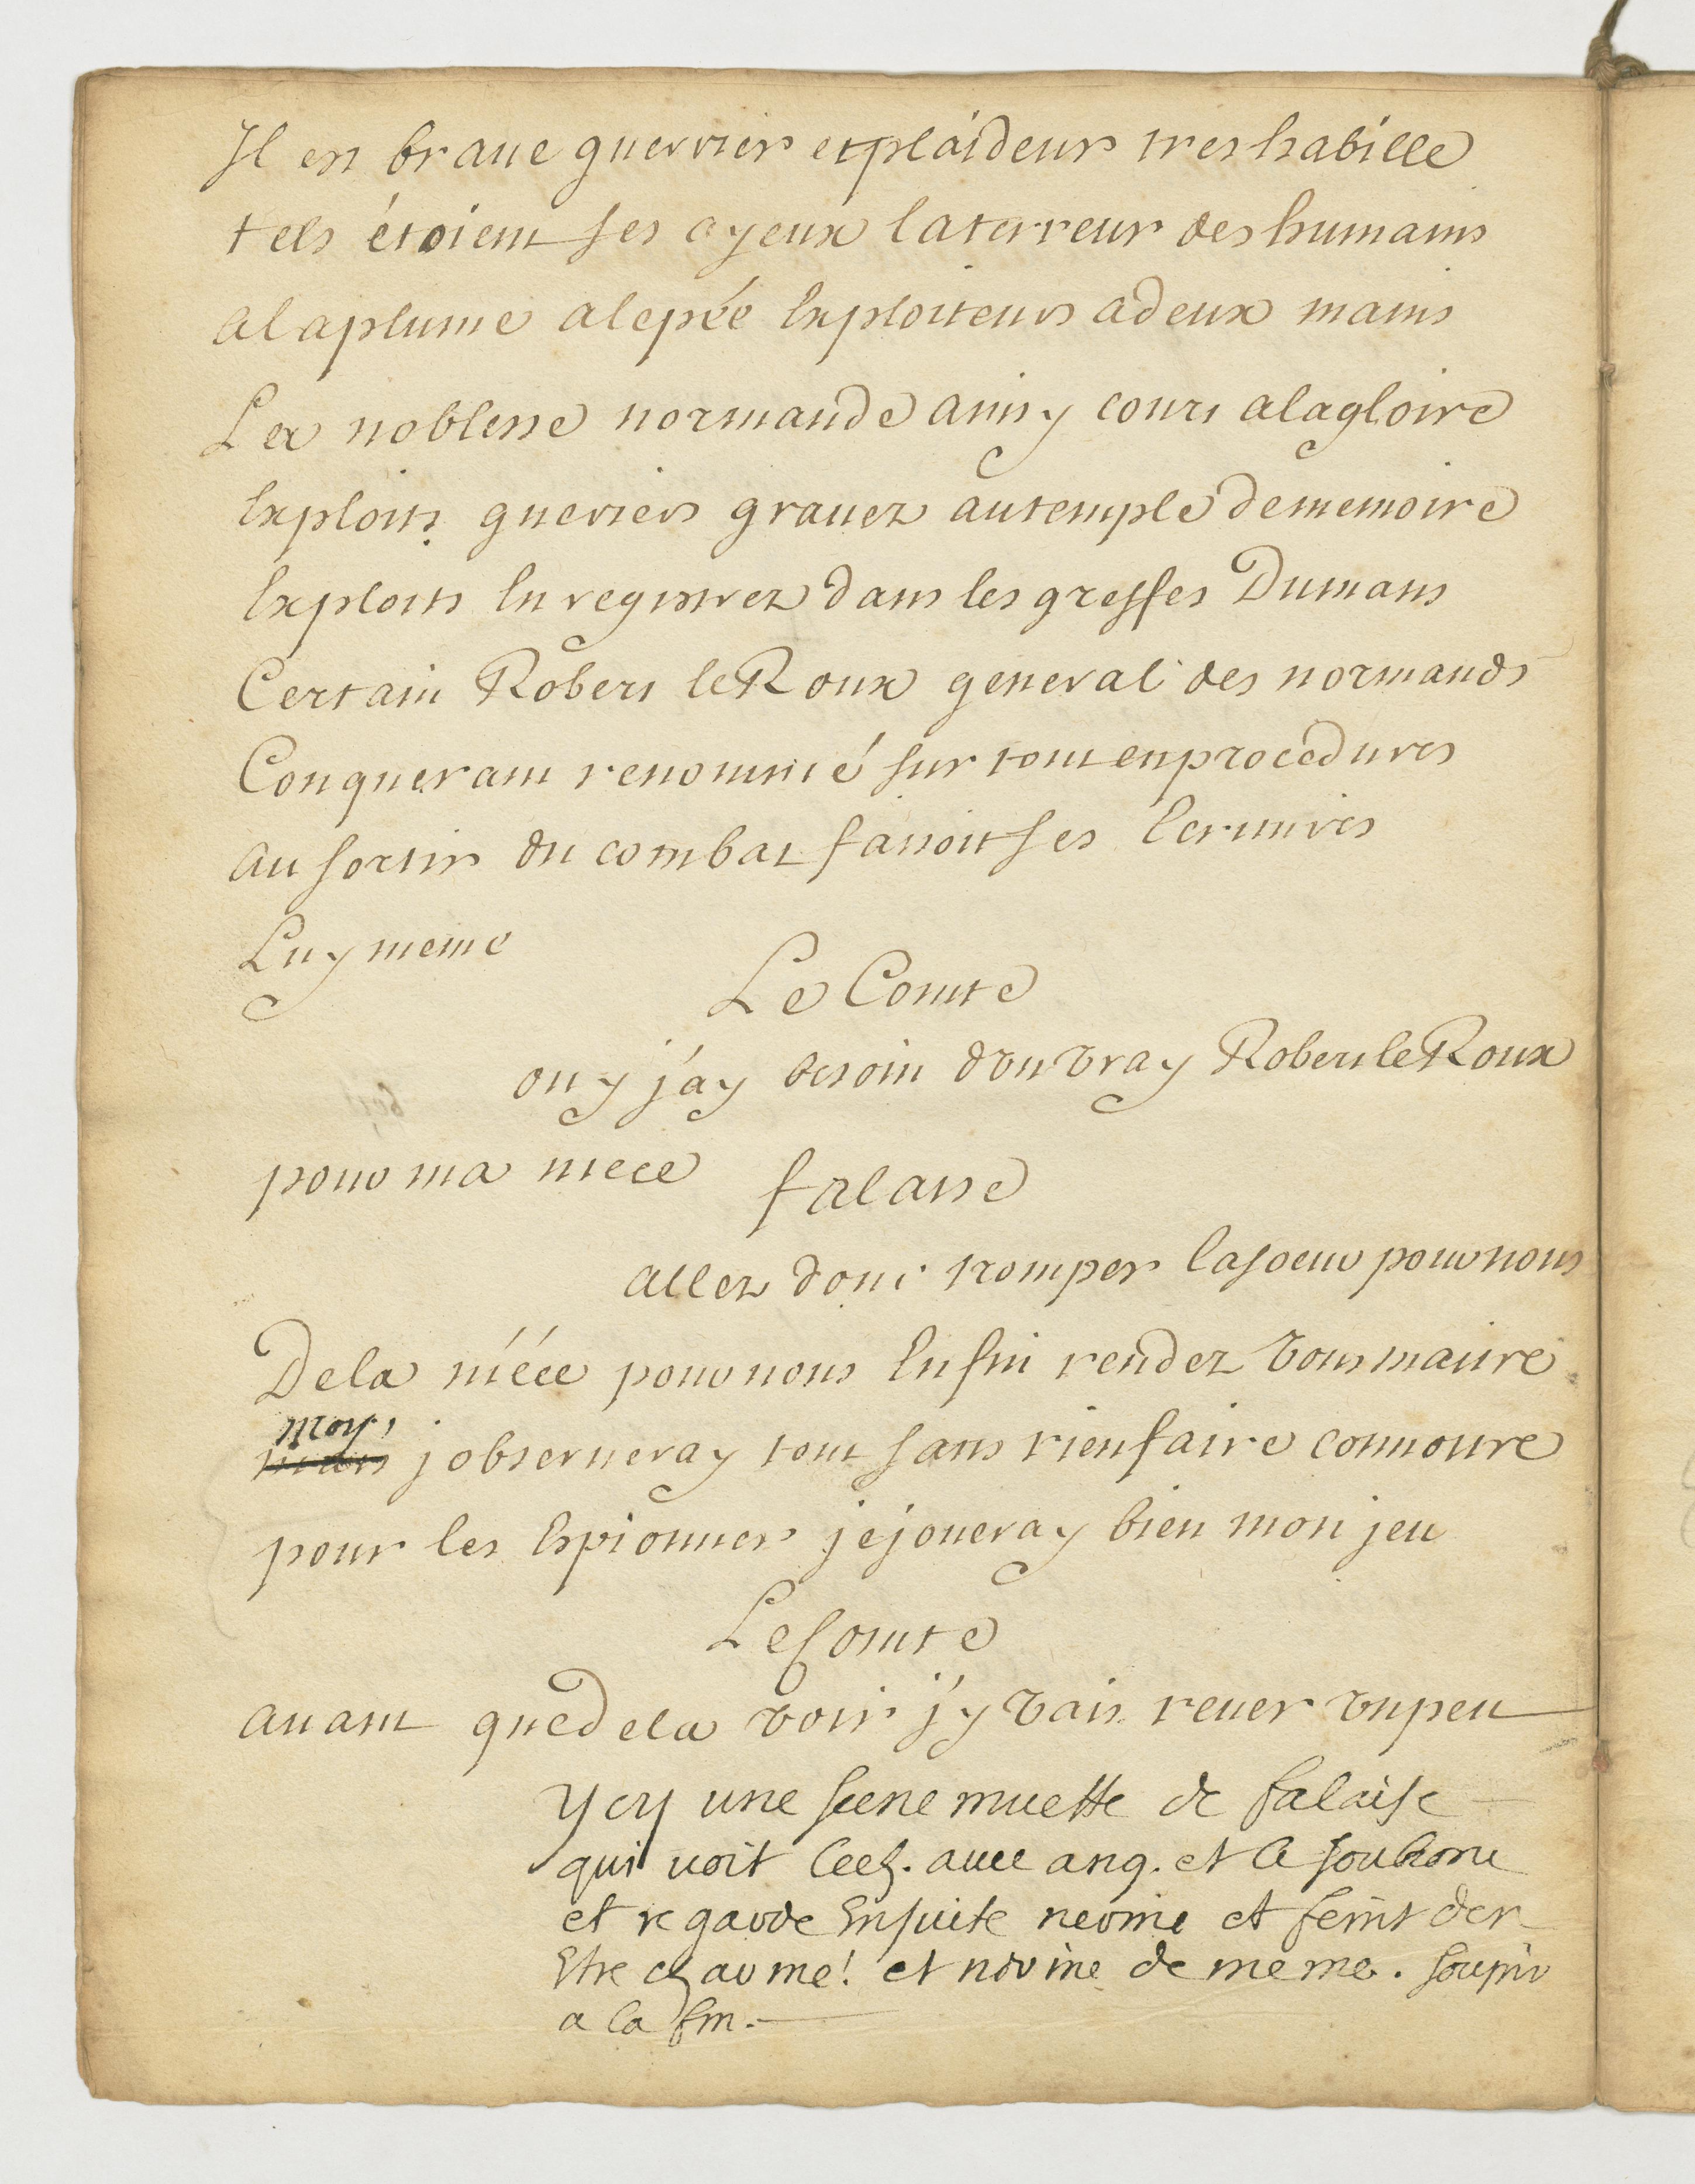 Il est braue guerrier et plaideur tres habille
tels étoient ses ayeux la terreur des humains
a la plume a lepée Exploiteurs a deux mains
La noblesse normande ainsy court a la gloire
Exploits gueriers grauez au temple de memoire
Exploits Enregistrez dans les greffes Dumans
Certain Robert le Roux general des normands
Conquerant renommé sur tout en procedures
au sortir du combat faisoit ses Ecritures
Luy meme
Le Comte
ouy j'ay besoin d'un vray Robert le Roux
pour ma niece
falaise
allez donc tromper la soeur pour nous
De la niéce pour nous Enfin rendez vous maitre
moy,
mais j observeray tout sans rien faire connoitre
pour les Espionner je joueray bien mon jeu
Le Comte
auant que de la voir j'y vais rever un peu
ycy une scene muette de falaise
qui voit Ceeh. auec ang. et la
et regarde Ensuite nerine et feint den
Etre charmé! et nerine de meme. soupir
a la fin.